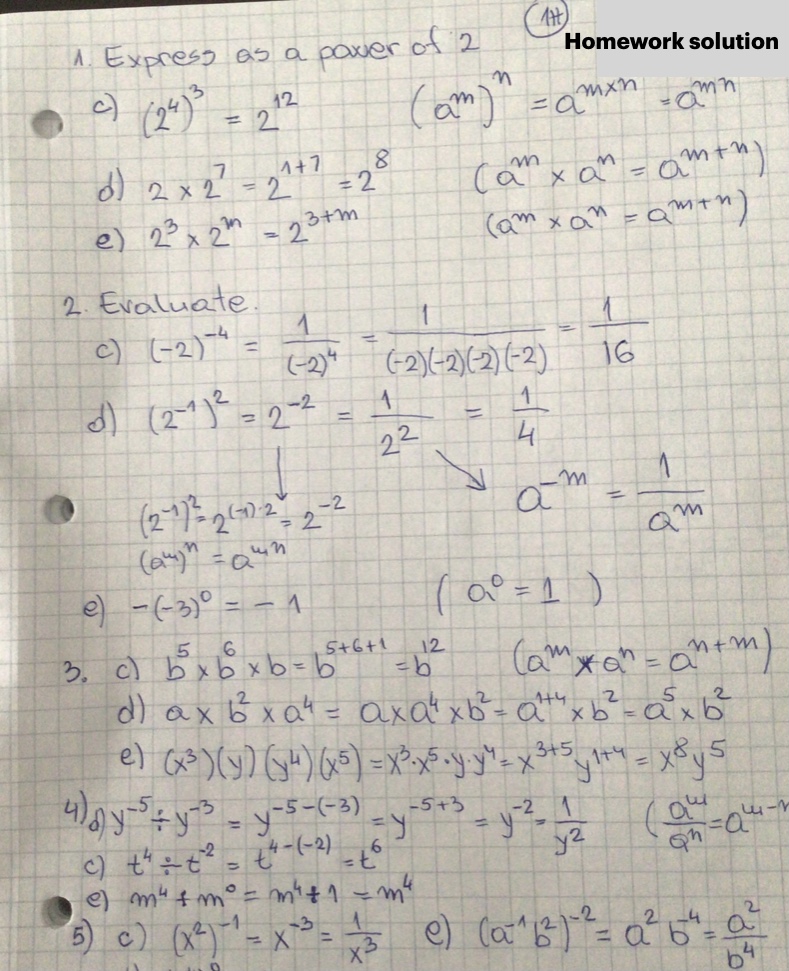 1H
Homework solution
1. Express as a power of 2
c) (2⁴)³ = 2¹² (aᵐ)ⁿ = aᵐˣⁿ = aᵐⁿ
d) 2 × 2⁷ = 2¹⁺⁷ = 2⁸ (aᵐ × aⁿ = aᵐ⁺ⁿ)
e) 2³ × 2ᵐ = 2³⁺ᵐ (aᵐ × aⁿ = aᵐ⁺ⁿ)
2. Evaluate.
c) (-2)⁻⁴ = 1/(-2)⁴ = 1/(-2)(-2)(-2)(-2) = 1/16
d) (2⁻¹)² = 2⁻² = 1/2² = 1/4
a⁻ᵐ = 1/aᵐ
(2⁻¹)² = 2⁽⁻¹⁾·² = 2⁻²
(aᵐ)ⁿ = aᵐⁿ
e) -(-3)⁰ = -1 (a⁰ = 1)
3. c) b⁵ × b⁶ × b = b⁵⁺⁶⁺¹ = b¹² (aᵐ × aⁿ = aⁿ⁺ᵐ)
d) a × b² × a⁴ = a × a⁴ × b² = a¹⁺⁴ × b² = a⁵ × b²
e) (x³)(y)(y⁴)(x⁵) = x³·x⁵·y·y⁴ = x³⁺⁵y¹⁺⁴ = x⁸y⁵
4) d) y⁻⁵ ÷ y⁻³ = y⁻⁵⁻⁽⁻³⁾ = y⁻⁵⁺³ = y⁻² = 1/y² (aᵐ/aⁿ = aᵐ⁻ⁿ
c) t⁴ ÷ t⁻² = t⁴⁻⁽⁻²⁾ = t⁶
e) m⁴ ÷ m⁰ = m⁴ ÷ 1 = m⁴
5) c) (x²)⁻¹ = x⁻³ = 1/x³ e) (a⁻¹b²)⁻² = a² b⁻⁴ = a²/b⁴